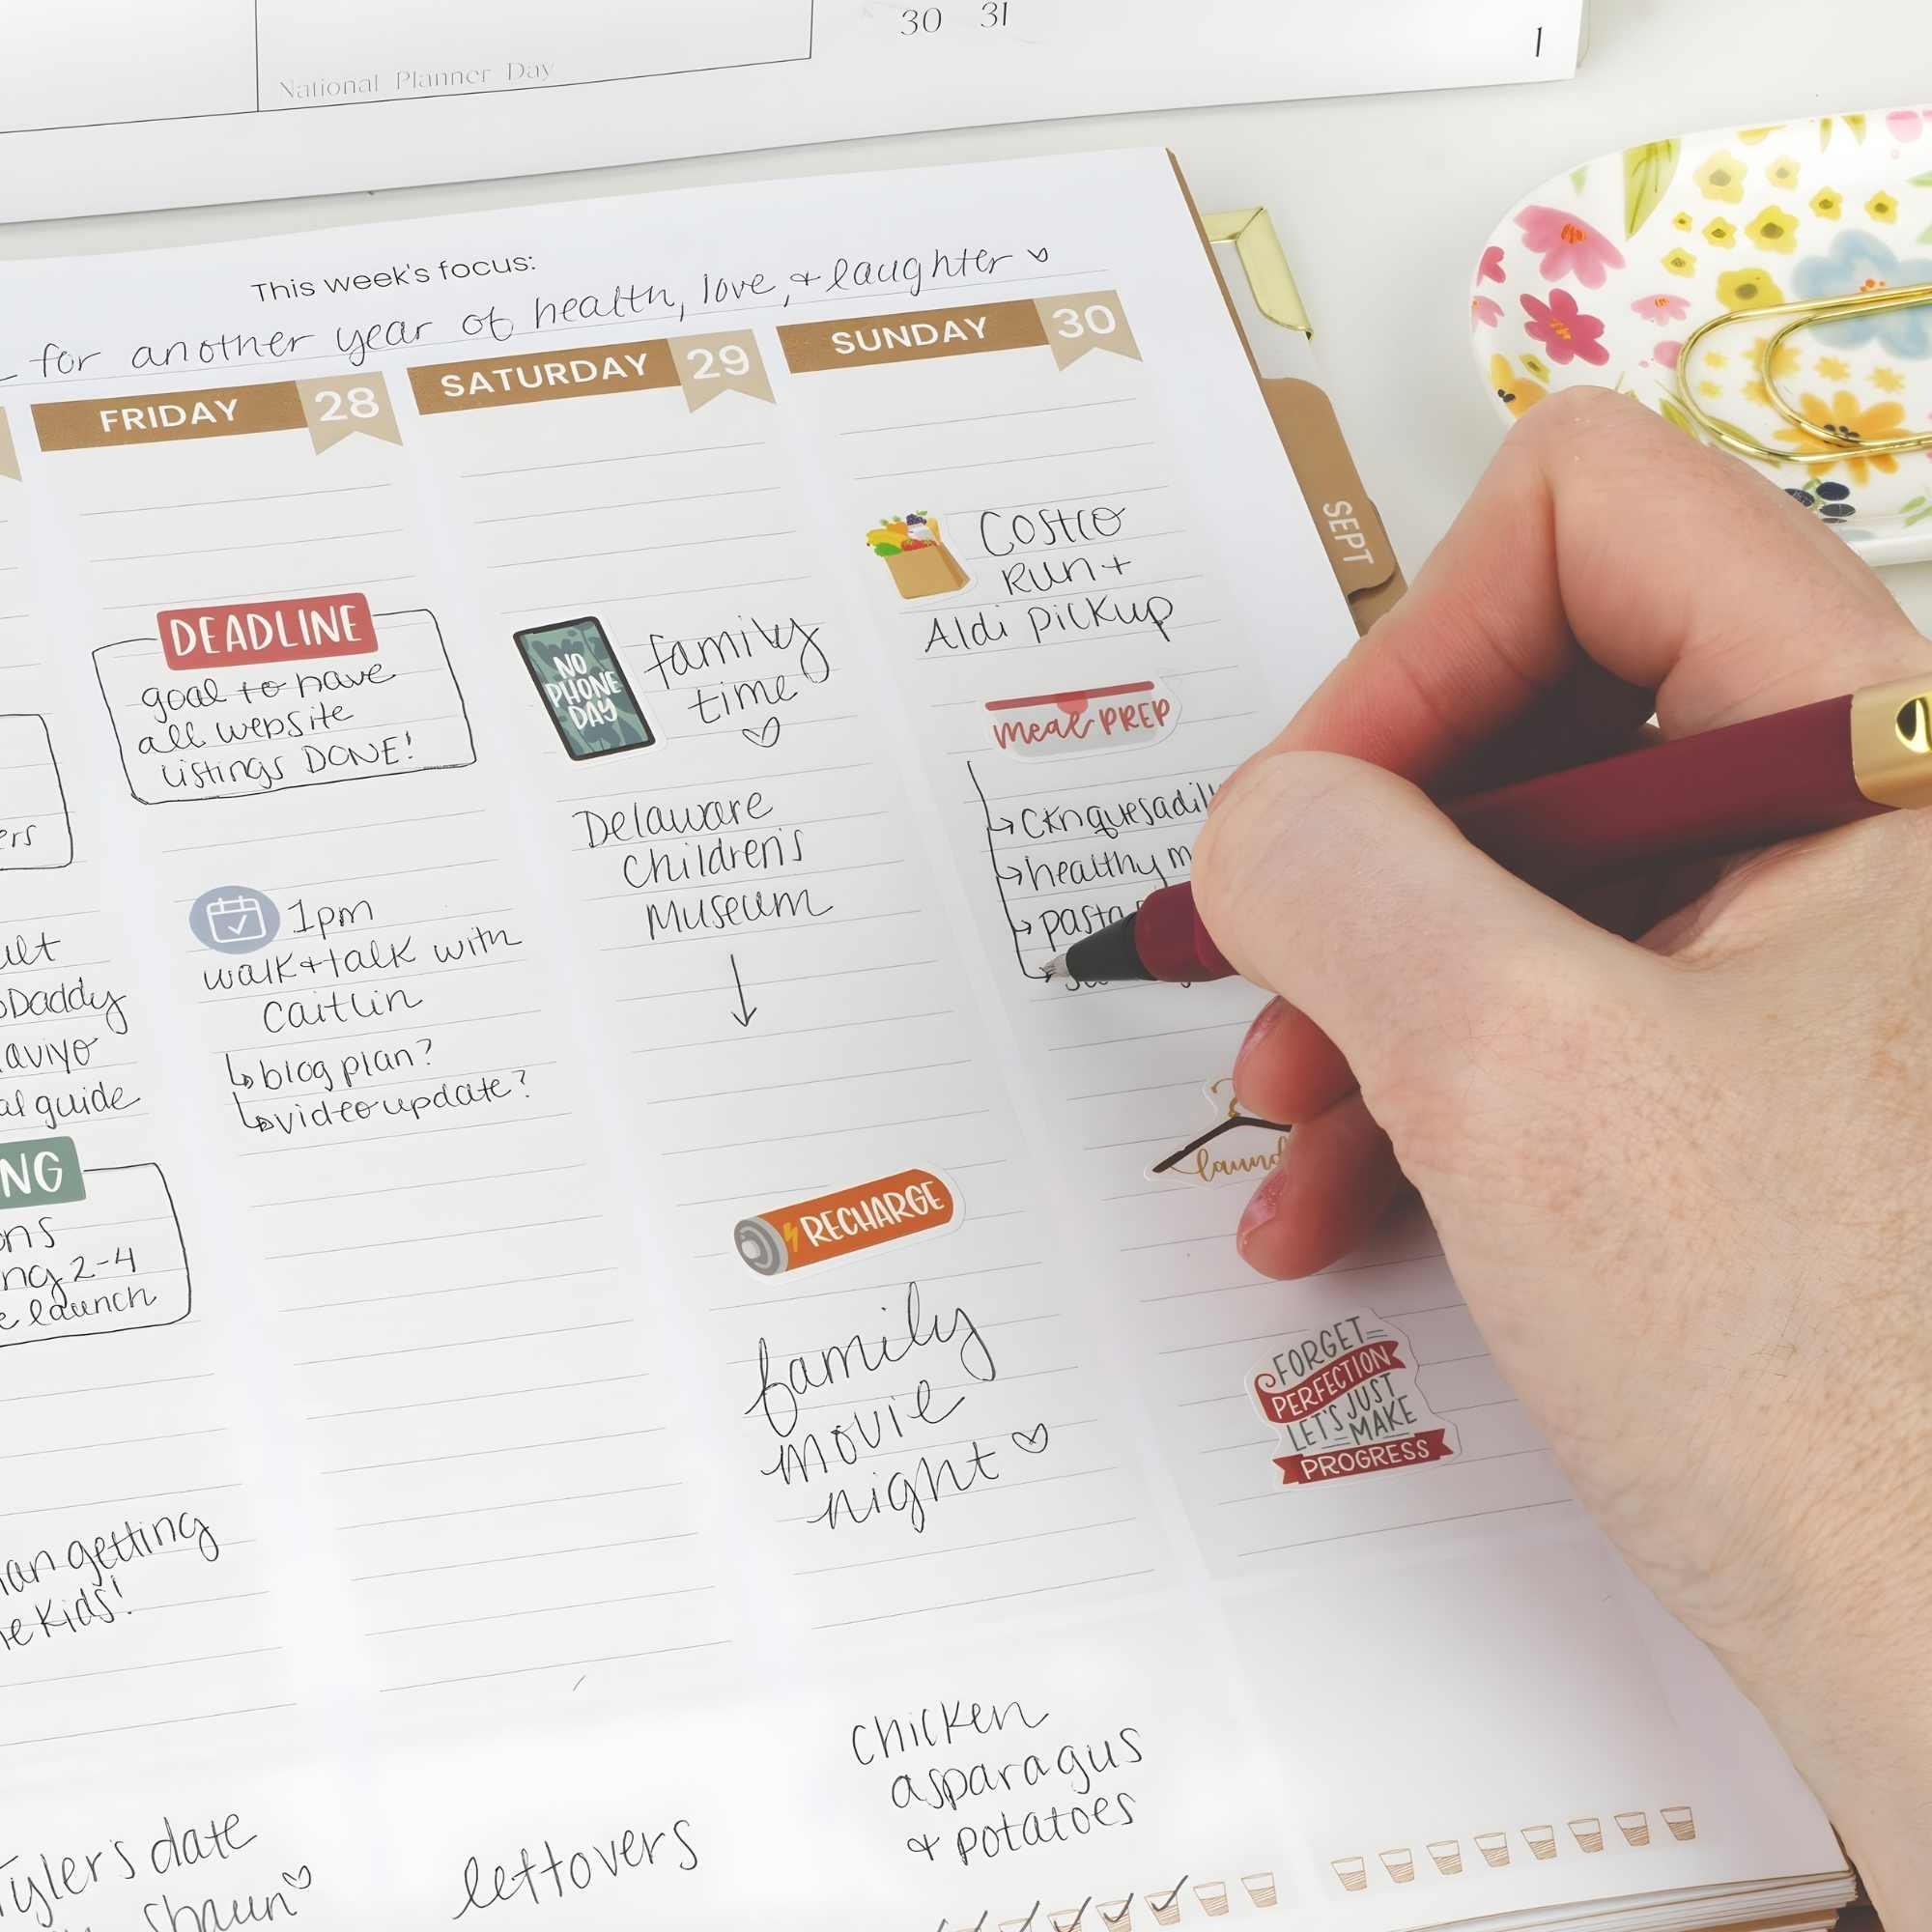 30 31
1
National Planner Day
This week's focus:
for another year of health, love, + laughter
FRIDAY 28
SATURDAY 29
SUNDAY 30
SEPT
ers
ult
Daddy
aviyo
al guide
NG
ons
ng 2-4
e launch
an getting
e kids!
Tyler's date
Shaun
DEADLINE
goal to have
all website
listings DONE!
1pm
walk + talk with
Caitlin
blog plan?
video update?
leftovers
NO
PHONE
DAY
family
time
Delaware
Children's
Museum
RECHARGE
family
movie
night
chicken
asparagus
+ potatoes
Costco
Run +
Aldi pickup
meal PREP
ckn quesadill
healthy m
pasta
laund
FORGET
PERFECTION
LET'S JUST
MAKE
PROGRESS